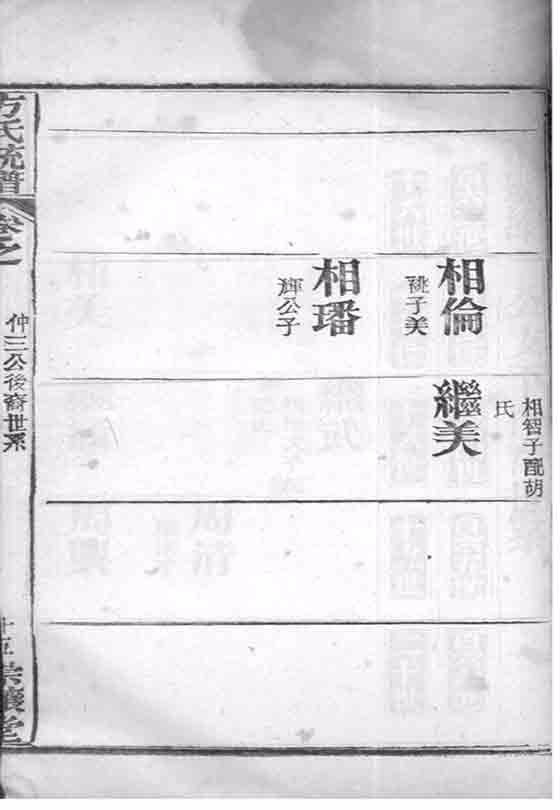 相智子配胡
氏
相倫
祧子美
繼美
相璠
輝公子
方氏統譜
卷之
仲三公後裔世系